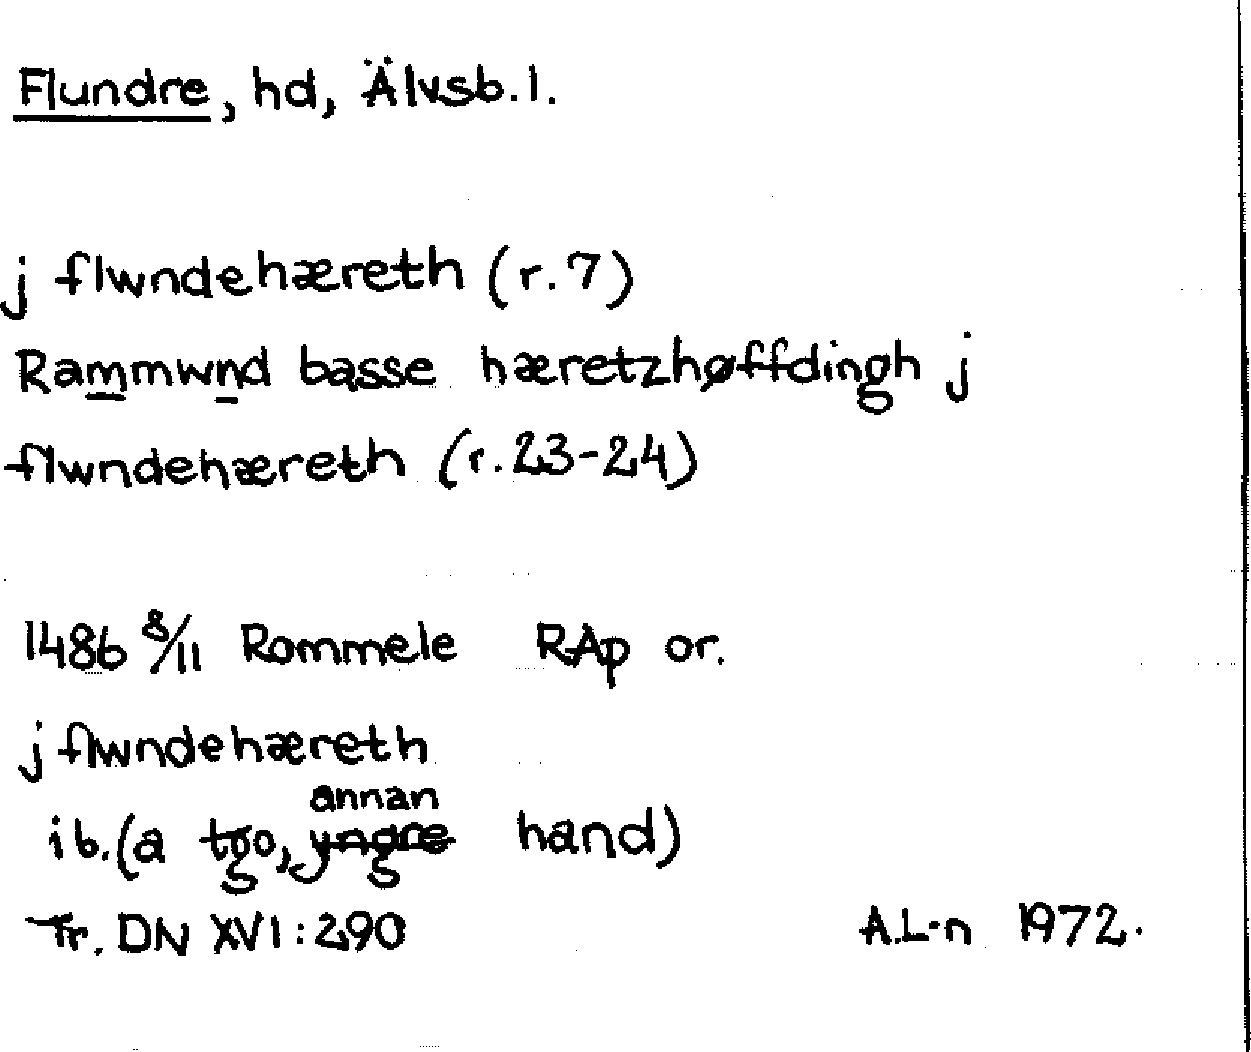 Flundre, hd, Älvsb. l.
j flwndehæreth (r. 7)
Rammwnd basse hæretzhøffdingh j
flwndehæreth (r. 23-24)
1486 8/11 Rommele RAp or.
j flwndehæreth
annan
ib. (a tgo, yngre hand)
Tr. DN XVI: 290 A.L-n 1972.